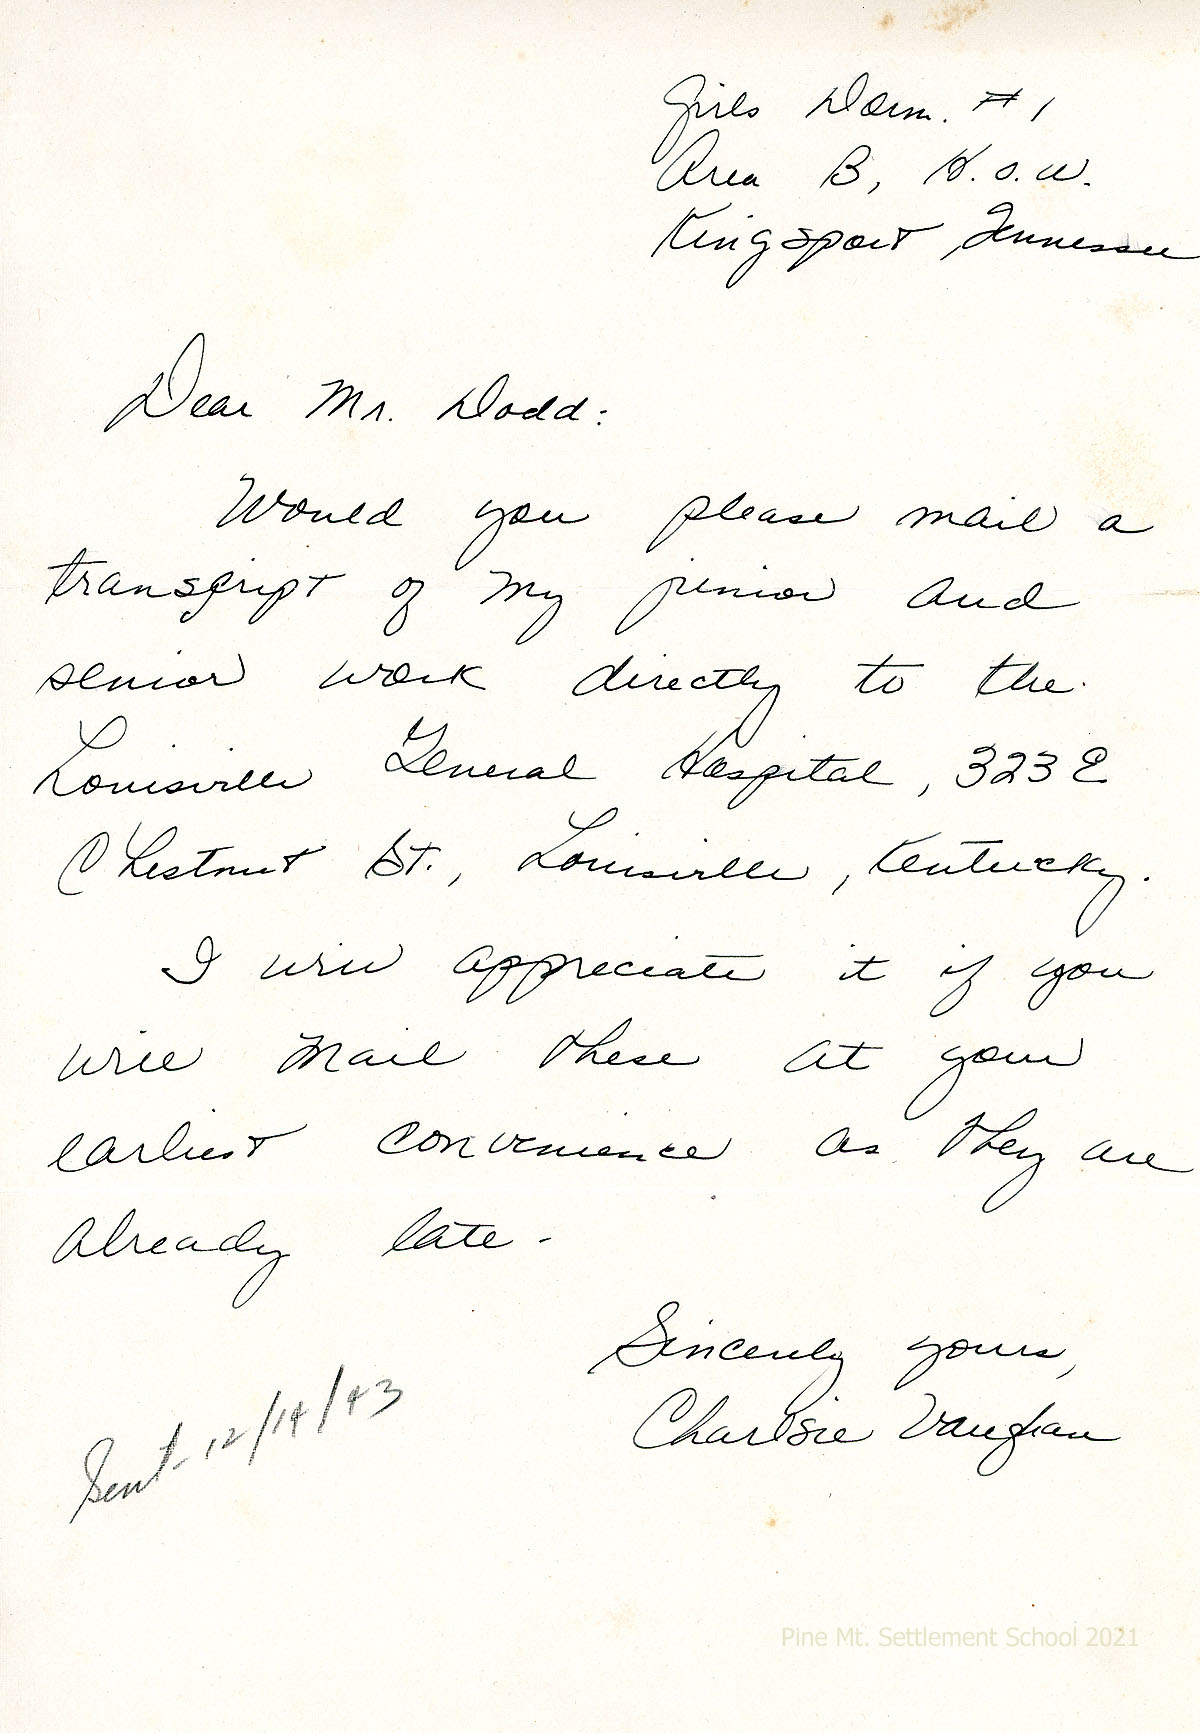 Girls Dorm. #1
Area B, H.O.W.
Kingsport, Tennessee
Dear Mr. Dodd:
Would you please mail a
transcript of my junior and
senior work directly to the
Louisville General Hospital, 323 E
Chestnut St., Louisville, Kentucky.
I will appreciate it if you
will mail these at your
earliest convenience as they are
already late.
Sincerely yours,
Charlsie Vaughan
Sent- 12/14/43
Pine Mt. Settlement School 2021